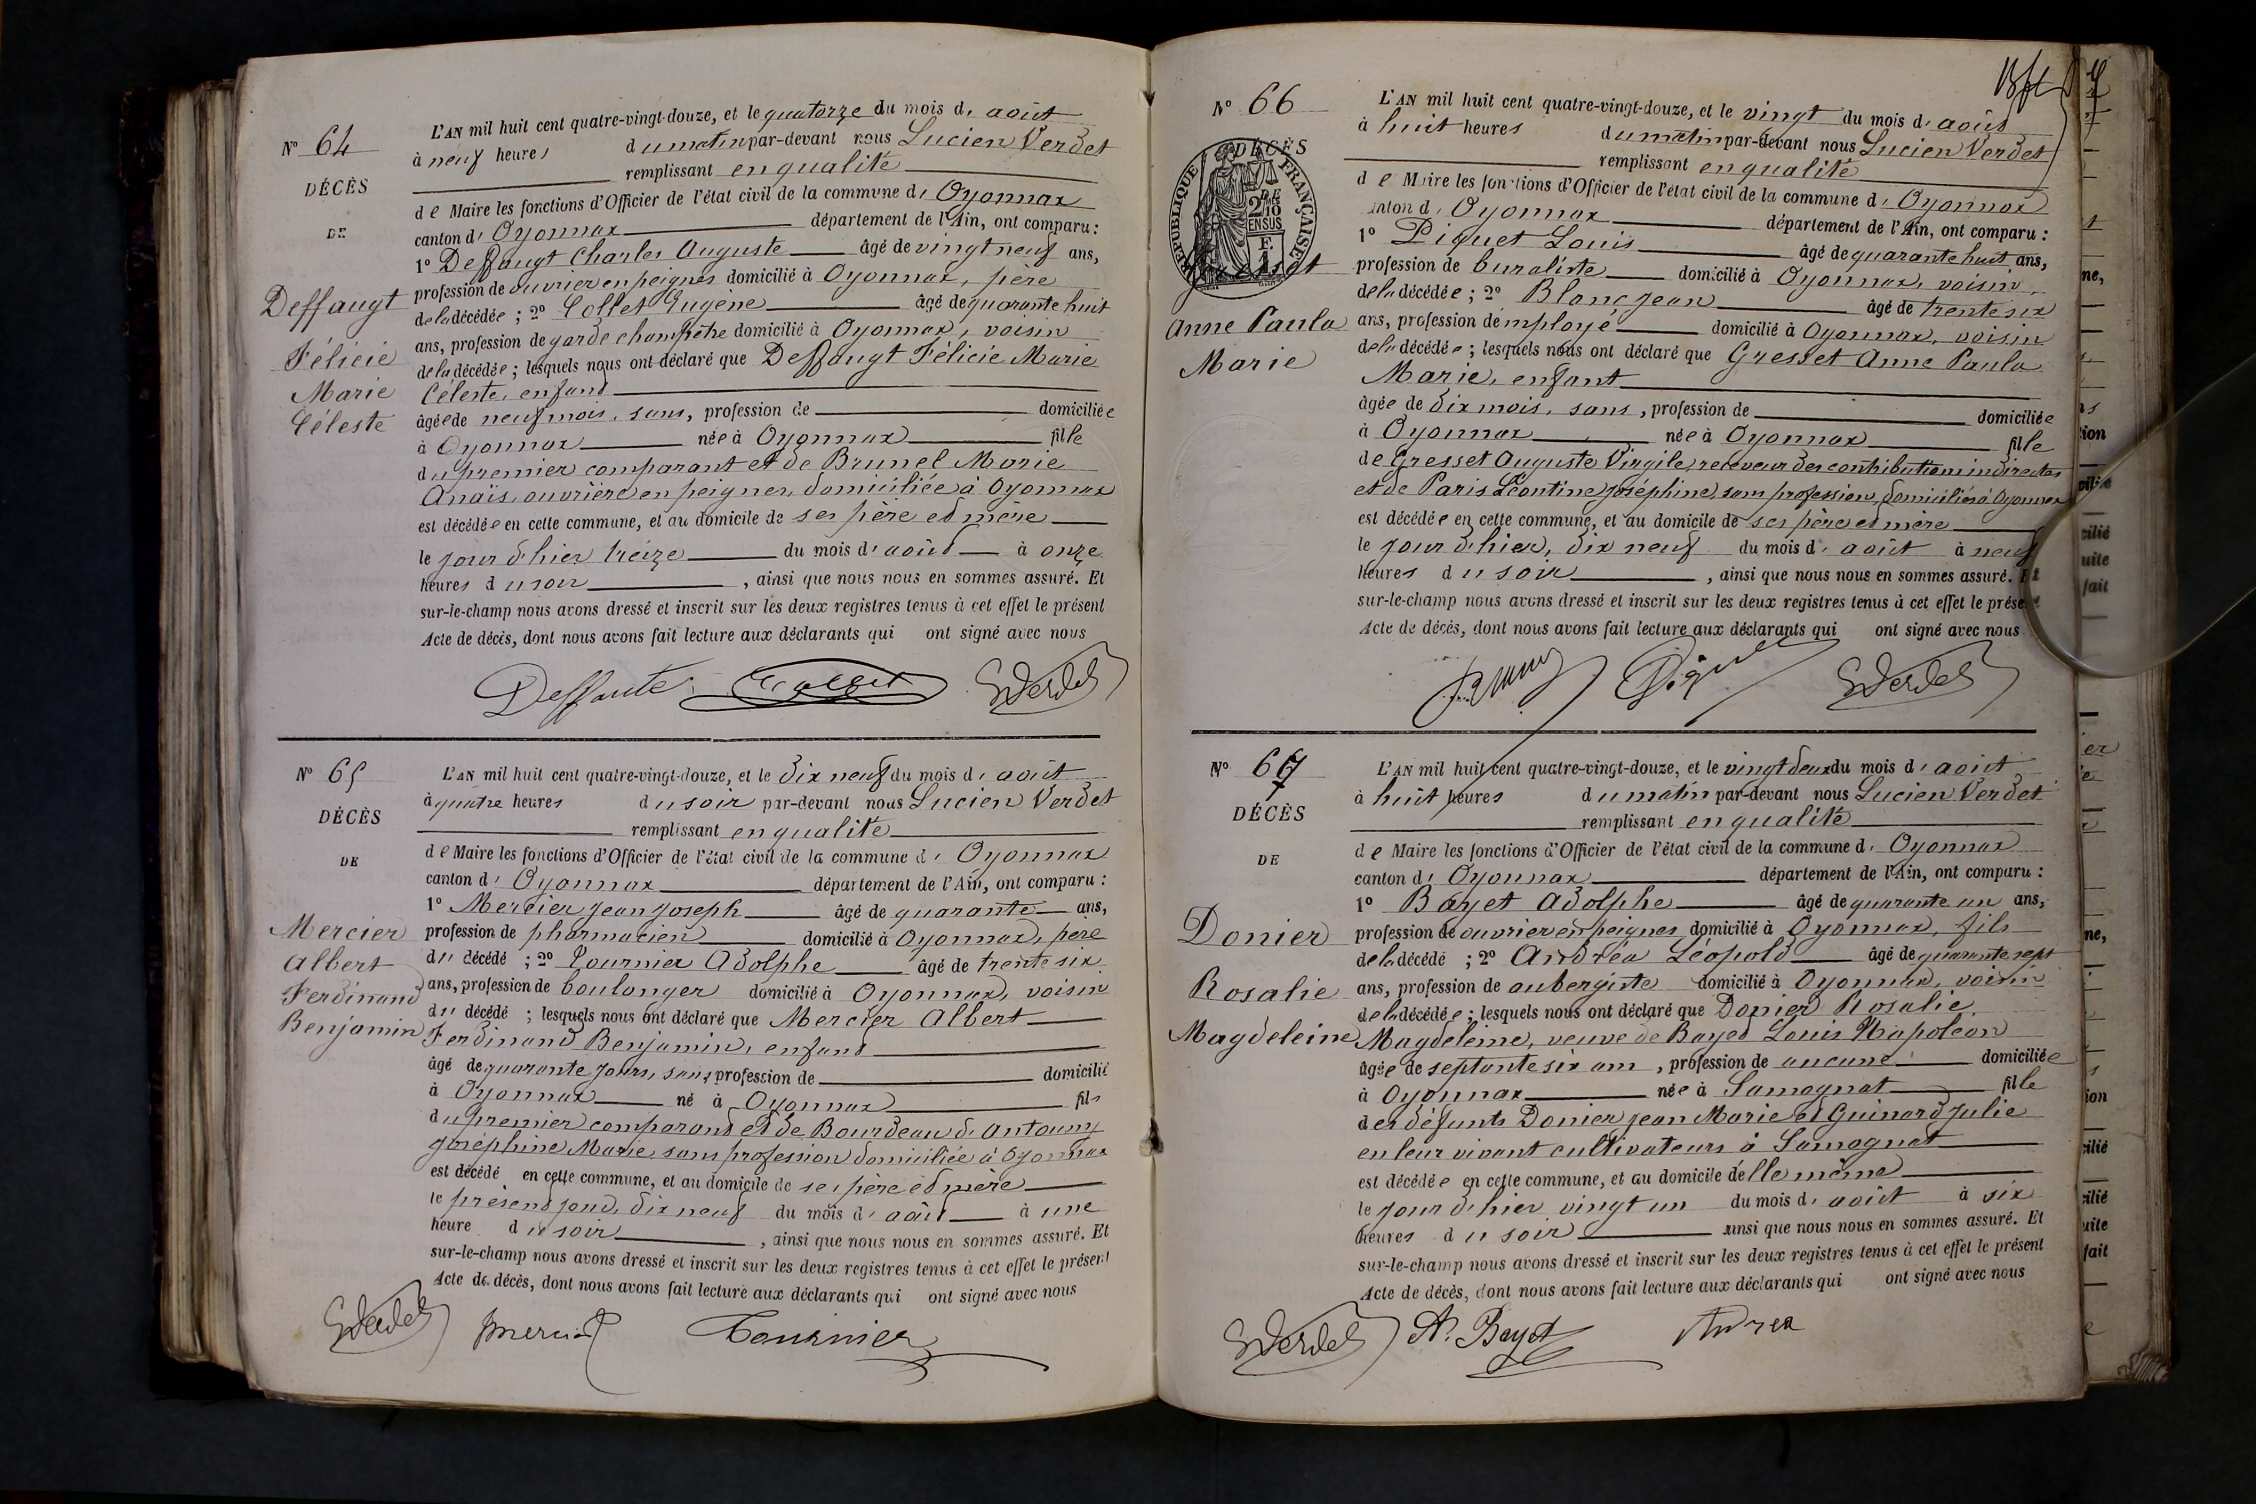 N° 64
DÉCÈS
DE
Deffaugt
Félicie
Marie
Céleste
L'AN mil huit cent quatre-vingt-douze, et le quatorze du mois d' août
à neuf heures du matin par-devant nous Lucien Verdet
remplissant en qualité
de Maire les fonctions d'Officier de l'état civil de la commune d' Oyonnax
canton d' Oyonnax département de l'Ain, ont comparu :
1° Deffaugt Charles Auguste âgé de vingt neuf ans,
profession de ouvrier en peignes domicilié à Oyonnax, père
de la décédée ; 2° Collet Eugène âgé de quarante huit
ans, profession de garde champêtre domicilié à Oyonnax, voisin
de la décédée ; lesquels nous ont déclaré que Deffaugt Félicie Marie
Céleste, enfant
âgée de neuf mois, sans, profession de domiciliée
à Oyonnax née à Oyonnax fille
du premier comparant et de Brunel Marie
Anaïs, ouvrière en peignes, domiciliée à Oyonnax
est décédée en cette commune, et au domicile de ses père et mère
le jour d'hier treize du mois d' août à onze
heures du soir , ainsi que nous nous en sommes assuré. Et
sur-le-champ nous avons dressé et inscrit sur les deux registres tenus à cet effet le présent
Acte de décès, dont nous avons fait lecture aux déclarants qui ont signé avec nous
Collet Verdet
N° 65
DÉCÈS
DE
Mercier
Albert
Ferdinand
Benjamin
L'AN mil huit cent quatre-vingt-douze, et le dix neuf du mois d' août
à quatre heures du soir par-devant nous Lucien Verdet
remplissant en qualité
de Maire les fonctions d'Officier de l'état civil de la commune d' Oyonnax
canton d' Oyonnax département de l'Ain, ont comparu :
1° Mercier Jean Joseph âgé de quarante ans,
profession de pharmacien domicilié à Oyonnax, père
du décédé ; 2° Tournier Adolphe âgé de trente six
ans, profession de boulanger domicilié à Oyonnax, voisin
du décédé ; lesquels nous ont déclaré que Mercier Albert
Ferdinand Benjamin, enfant
âgé de quarante jours, sans profession de domicilié
à Oyonnax né à Oyonnax fils
du premier comparant et de Bourdeau d' Antouny
Joséphine Marie, sans profession domiciliée à Oyonnax
est décédé en cette commune, et au domicile de ses père et mère
le présent jour, dix neuf du mois d' août à une
heure du soir , ainsi que nous nous en sommes assuré. Et
sur-le-champ nous avons dressé et inscrit sur les deux registres tenus à cet effet le présent
Acte de décès, dont nous avons fait lecture aux déclarants qui ont signé avec nous
Verdet Mercier Tournier
N° 66
DÉCÈS
RÉPUBLIQUE FRANÇAISE
2 DMES 10 EN SUS
Gresset
Anne Paula
Marie
L'AN mil huit cent quatre-vingt-douze, et le vingt du mois d' août
à huit heures du matin par-devant nous Lucien Verdet
remplissant en qualité
de Maire les fonctions d'Officier de l'état civil de la commune d' Oyonnax
canton d' Oyonnax département de l'Ain, ont comparu :
1° Piquet Louis âgé de quarante huit ans,
profession de buraliste domicilié à Oyonnax, voisin
de la décédée ; 2° Blanc Jean âgé de trente six
ans, profession d'employé domicilié à Oyonnax, voisin
de la décédée ; lesquels nous ont déclaré que Gresset Anne Paula
Marie, enfant
âgée de dix mois, sans, profession de domiciliée
à Oyonnax née à Oyonnax fille
de Gresset Auguste Virgile, receveur des contributions indirectes
et de Paris Léontine Joséphine, sans profession, domiciliés à Oyonnax
est décédée en cette commune, et au domicile de ses père et mère
le jour d'hier, dix neuf du mois d' août à neuf
heures du soir , ainsi que nous nous en sommes assuré. Et
sur-le-champ nous avons dressé et inscrit sur les deux registres tenus à cet effet le présent
Acte de décès, dont nous avons fait lecture aux déclarants qui ont signé avec nous
Piquet Verdet
N° 67
DÉCÈS
DE
Donier
Rosalie
Magdeleine
L'AN mil huit cent quatre-vingt-douze, et le vingt deux du mois d' août
à huit heures du matin par-devant nous Lucien Verdet
remplissant en qualité
de Maire les fonctions d'Officier de l'état civil de la commune d' Oyonnax
canton d' Oyonnax département de l'Ain, ont comparu :
1° Bayet Adolphe âgé de quarante un ans,
profession de ouvrier en peignes domicilié à Oyonnax, fils
de la décédé ; 2° Andréa Léopold âgé de quarante sept
ans, profession de aubergiste domicilié à Oyonnax, voisin
de la décédée ; lesquels nous ont déclaré que Donier Rosalie
Magdeleine, veuve de Bayet Louis Napoléon
âgée de septante six ans, profession de aucune domiciliée
à Oyonnax née à Samognat fille
des défunts Donier Jean Marie et Guinard Julie
en leur vivant cultivateurs à Samognat
est décédée en cette commune, et au domicile d'elle même
le jour d'hier vingt un du mois d' août à six
heures du soir ainsi que nous nous en sommes assuré. Et
sur-le-champ nous avons dressé et inscrit sur les deux registres tenus à cet effet le présent
Acte de décès, dont nous avons fait lecture aux déclarants qui ont signé avec nous
Verdet A. Bayet Andréa